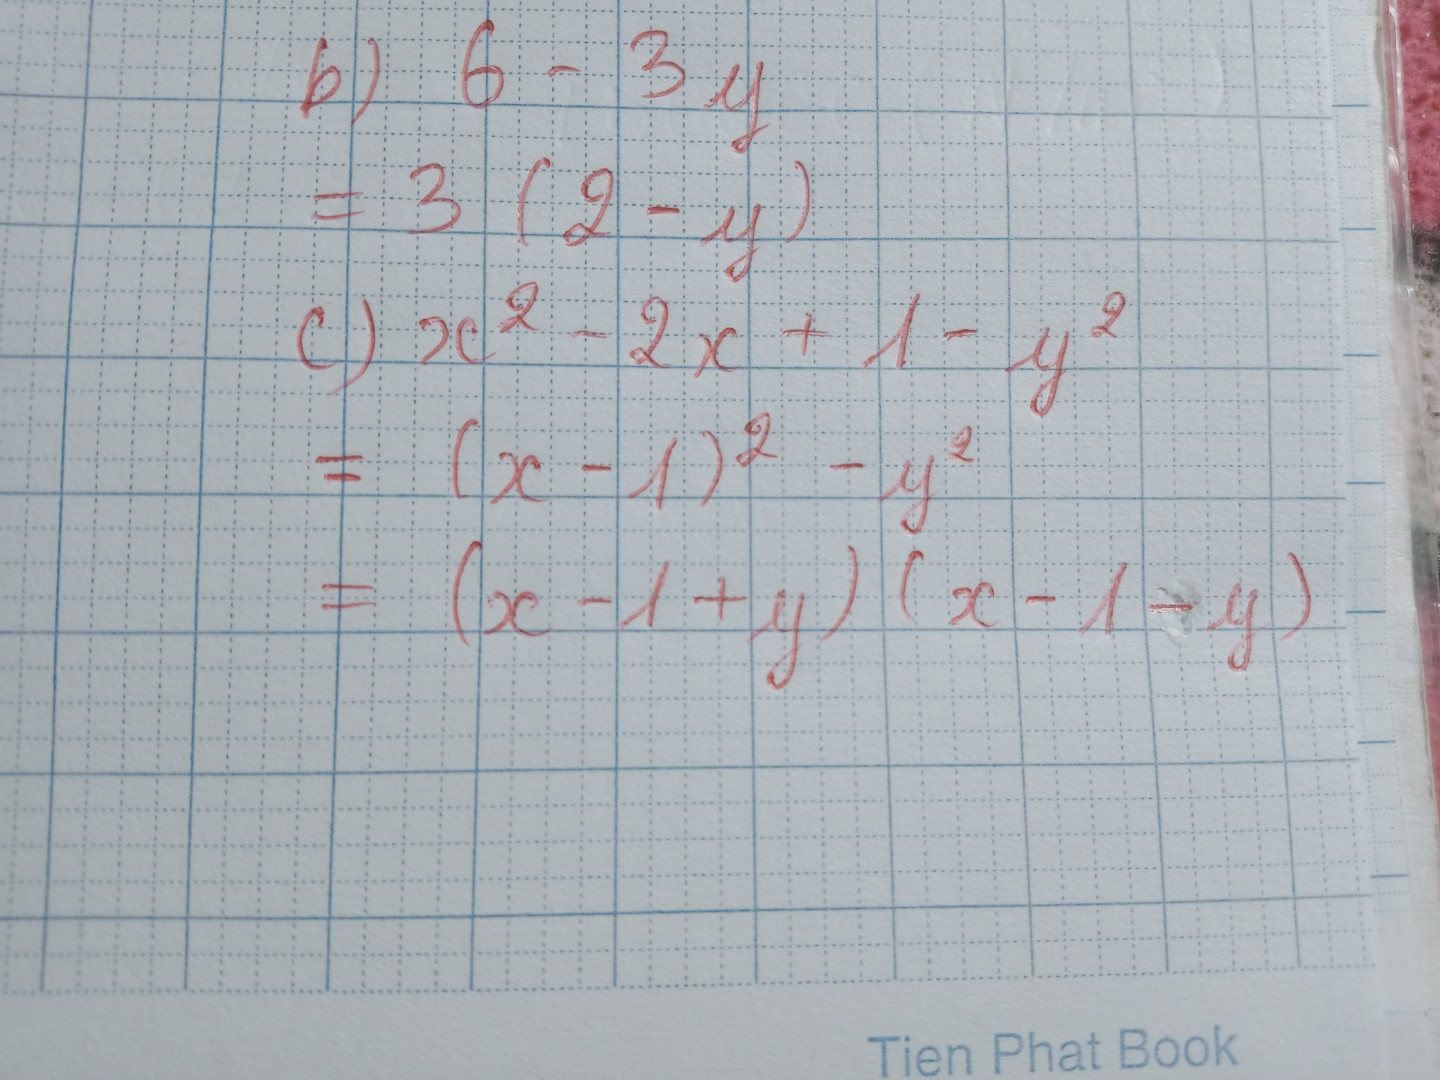 b) 6 - 3y
= 3 (2 - y)
c) x² - 2x + 1 - y²
= (x - 1)² - y²
= (x - 1 + y) (x - 1 - y)
Tien Phat Book